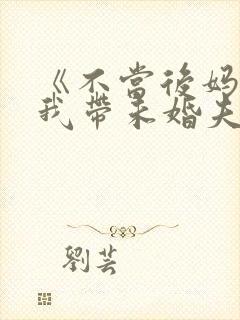 《不當後妈
我帶未婚夫
劉芸